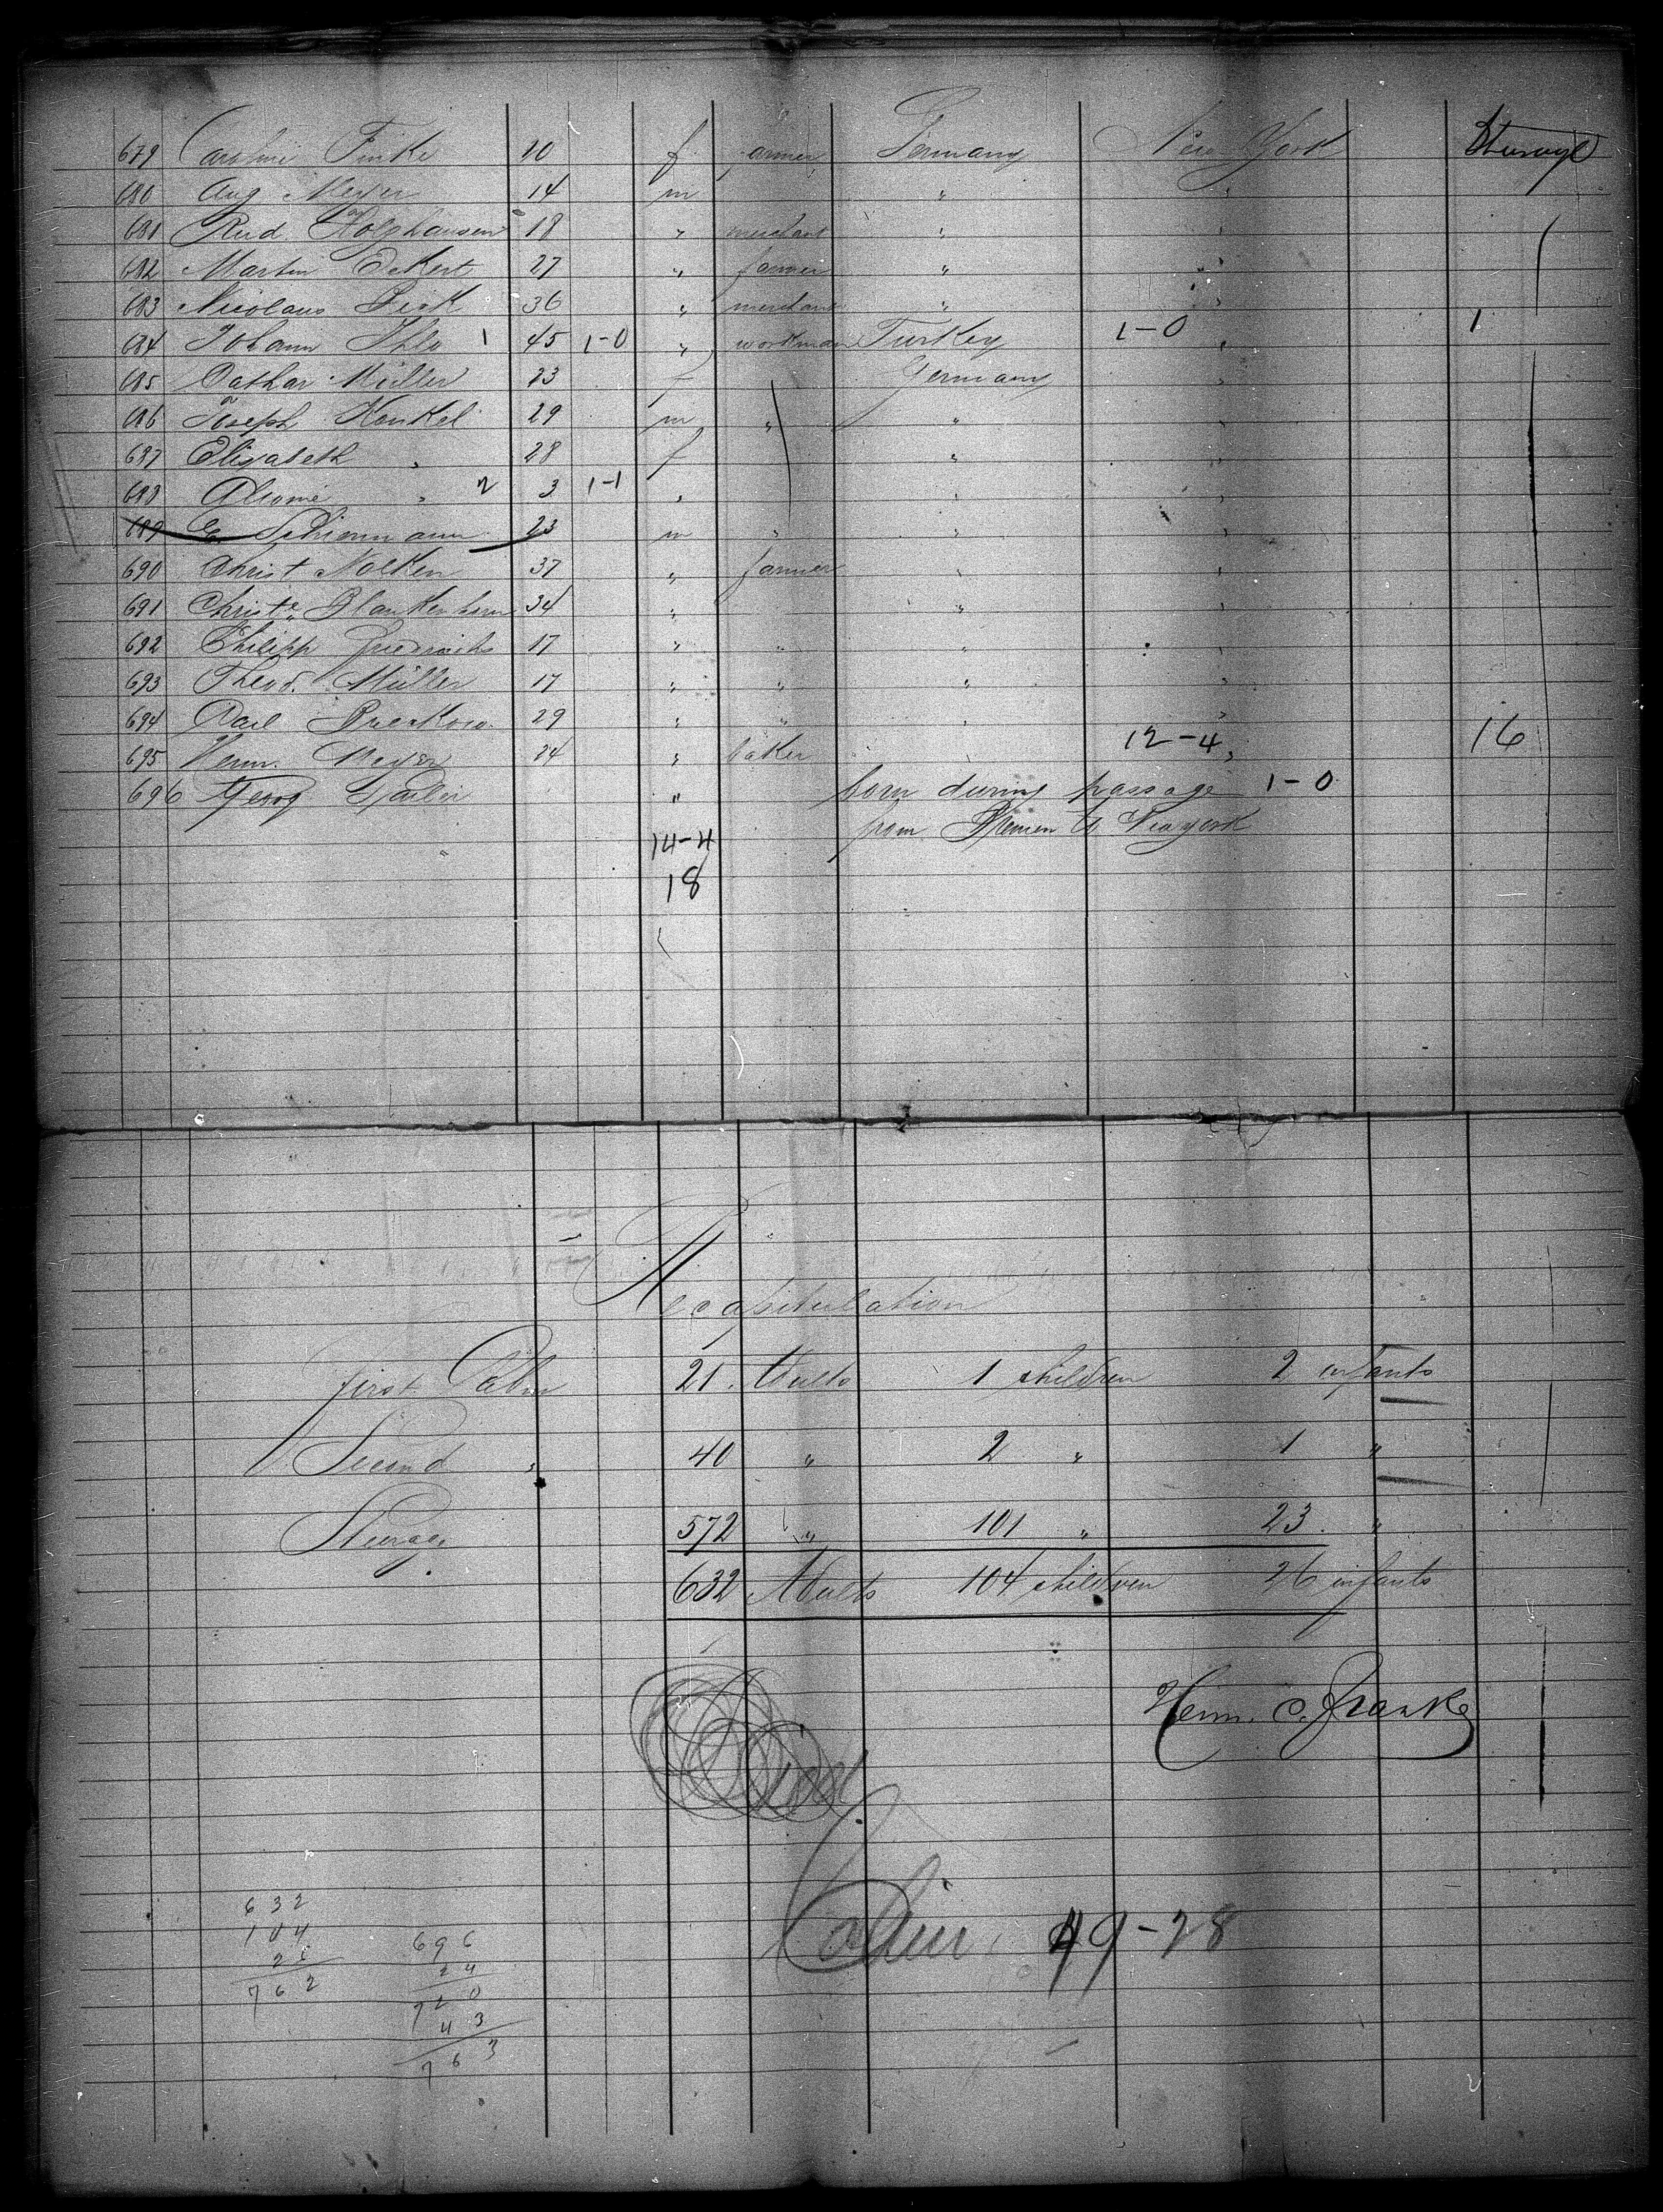 679 Caroline Finke 10 f farmer Germany New York Steerage
680 Aug Meyer 14 m " "
681 Rud. 18 " merchant " "
682 Martin Eckert 27 " farmer " "
683 Nicolaus 36 " merchant " "
684 Johann 1 45 1-0 " workman Turkey 1-0 " 1
685 Cathar Müller 23 f Germany "
686 Joseph Henkel 29 m " " "
687 Elisabeth " 28 f " "
688 " 2 3 1-1 " " "
689 Schiermann 23 m " " "
690 Christ Nolken 37 " farmer " "
691 Christ Blankenhorn 34 " " "
692 Philipp Friedrichs 17 " " " "
693 Theod. Müller 17 " " " "
694 Carl 29 " " " "
695 Herm. Meyer 24 " baker 12-4 " 16
696 Georg " born during passage 1-0
from Bremen to Newyork
14-4
18
Recapitulation
First Cabin 21 Adults 1 children 2 infants
Second " 40 " 2 " 1 "
Steerage 572 " 101 " 23 "
632 Adults 104 children 26 infants
Herm. C. Franke
Cabin 49-28
632
104
26
762
696
24
720
43
763